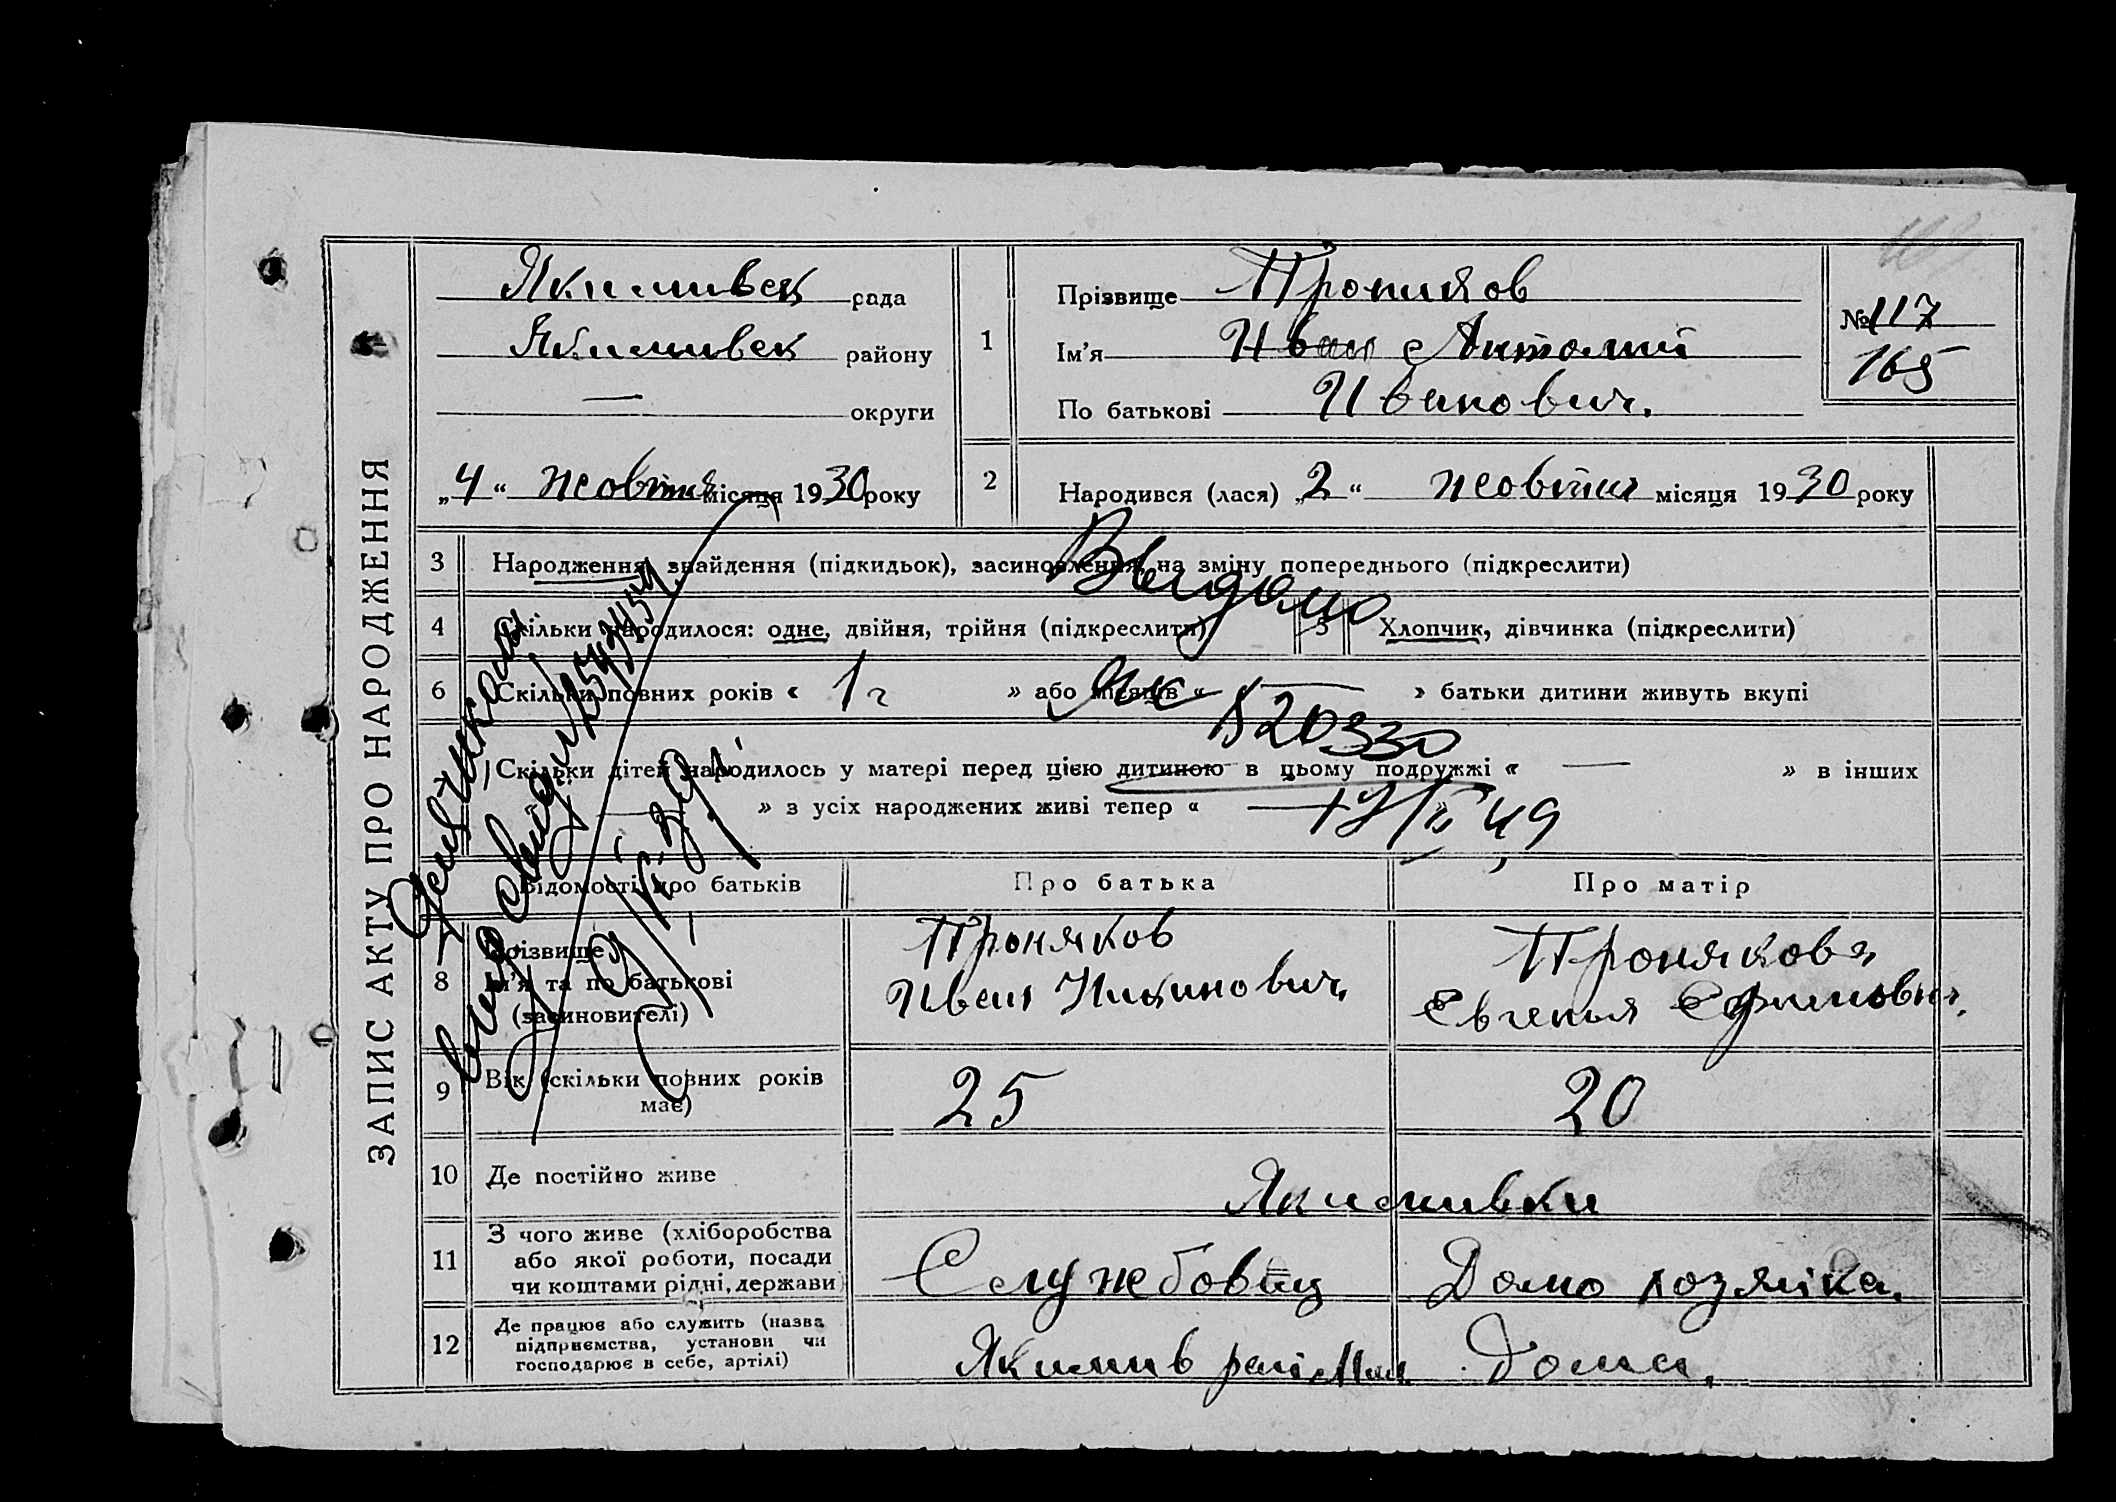 ЗАПИС АКТУ ПРО НАРОДЖЕННЯ
Якимивск рада
Якимивск району
— округи
„4“ жовтня місяця 1930 року
1
Прізвище Проняков
Ім’я Иван Антолий
По батькові Иванович.
№ 117
165
2
Народився (лася) „2“ жовтня місяця 1930 року
3 Народження, знайдення (підкидьок), засиновлення, на зміну попереднього (підкреслити)
Выдано
4 Скільки народилося: одне, двійня, трійня (підкреслити)
5 Хлопчик, дівчинка (підкреслити)
6 Скільки повних років « 1 г » або місяців « — » батьки дитини живуть вкупі
820330
Скільки дітей народилось у матері перед цією дитиною в цьому подружжі « — » в інших
« — » з усіх народжених живі тепер « — »
49
Відомості про батьків
Про батька
Про матір
8 Прізвище
Ім’я та по батькові
(засиновителі)
Проняков
Иван Никинович,
Пронякова
Евгенья Ефимовн.
9 Вік (скільки повних років
має)
25
20
10 Де постійно живе
Якимивки
11 З чого живе (хліборобства
або якої роботи, посади
чи коштами рідні, держави)
Службовец
Домо хозяйка.
12 Де працює або служить (назва
підприємства, установи чи
господарює в себе, артілі)
Якимив рай
Дома.